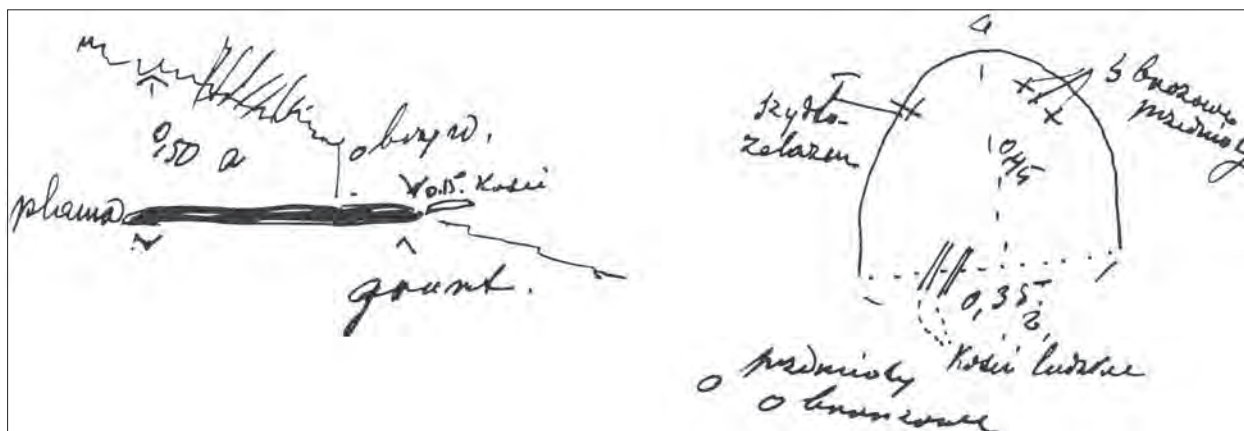 0,50 a
obrzęd.
plama
0.15. Kości
grunt.
a
szydło
żelazne
3 bronzowe
przedmioty
0,45
0,35.
Kości ludzkie
przedmioty
bronzowe